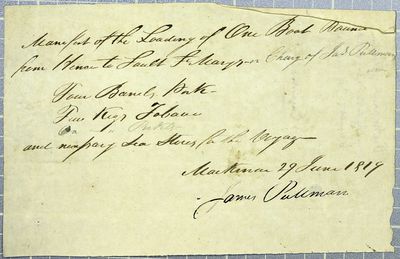 Manifest of the Loading of One Boat Bound
from Hence to Sault St Marys in Charg of Jas Pullman
Four Barrels Pork
Few Kegs Tobacco
and necessary Sea Stores for the Voyag
Mackinac 29 June 1819
James Pullman